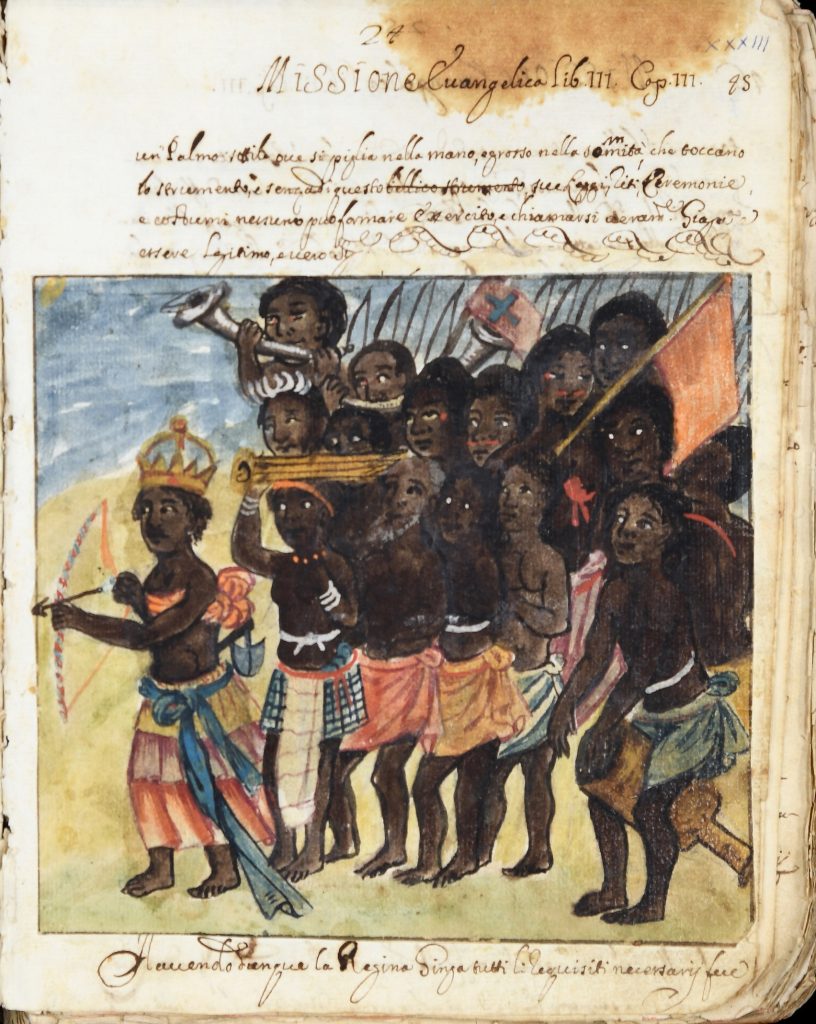 24
XXXIII
Missione Evangelica Lib. III. Cap. III. 93
un Palmo sottile ove si piglia nella mano, e grosso nella sommità, che toccano
lo strumento, e senza di questo bellico strumento, sue Leggi, Riti, Ceremonie,
e costumi nessuno può formare Exercito, e chiamarsi
essere Legitimo, e vero
Havendo dunque la Regina Singa tutti li requisiti necessarij fece